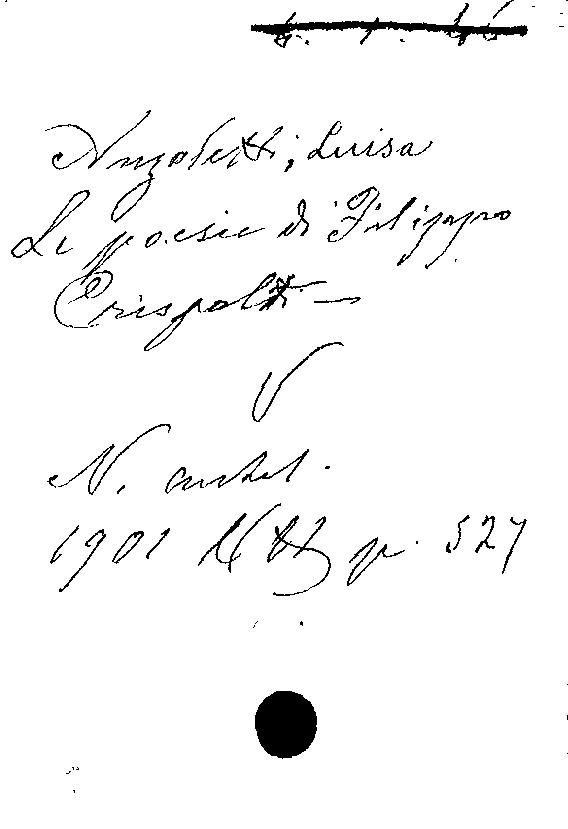 Anzoletti, Luisa
Le poesie di Filippo
Crispolti –
V
N. antol.
1901 p. 527